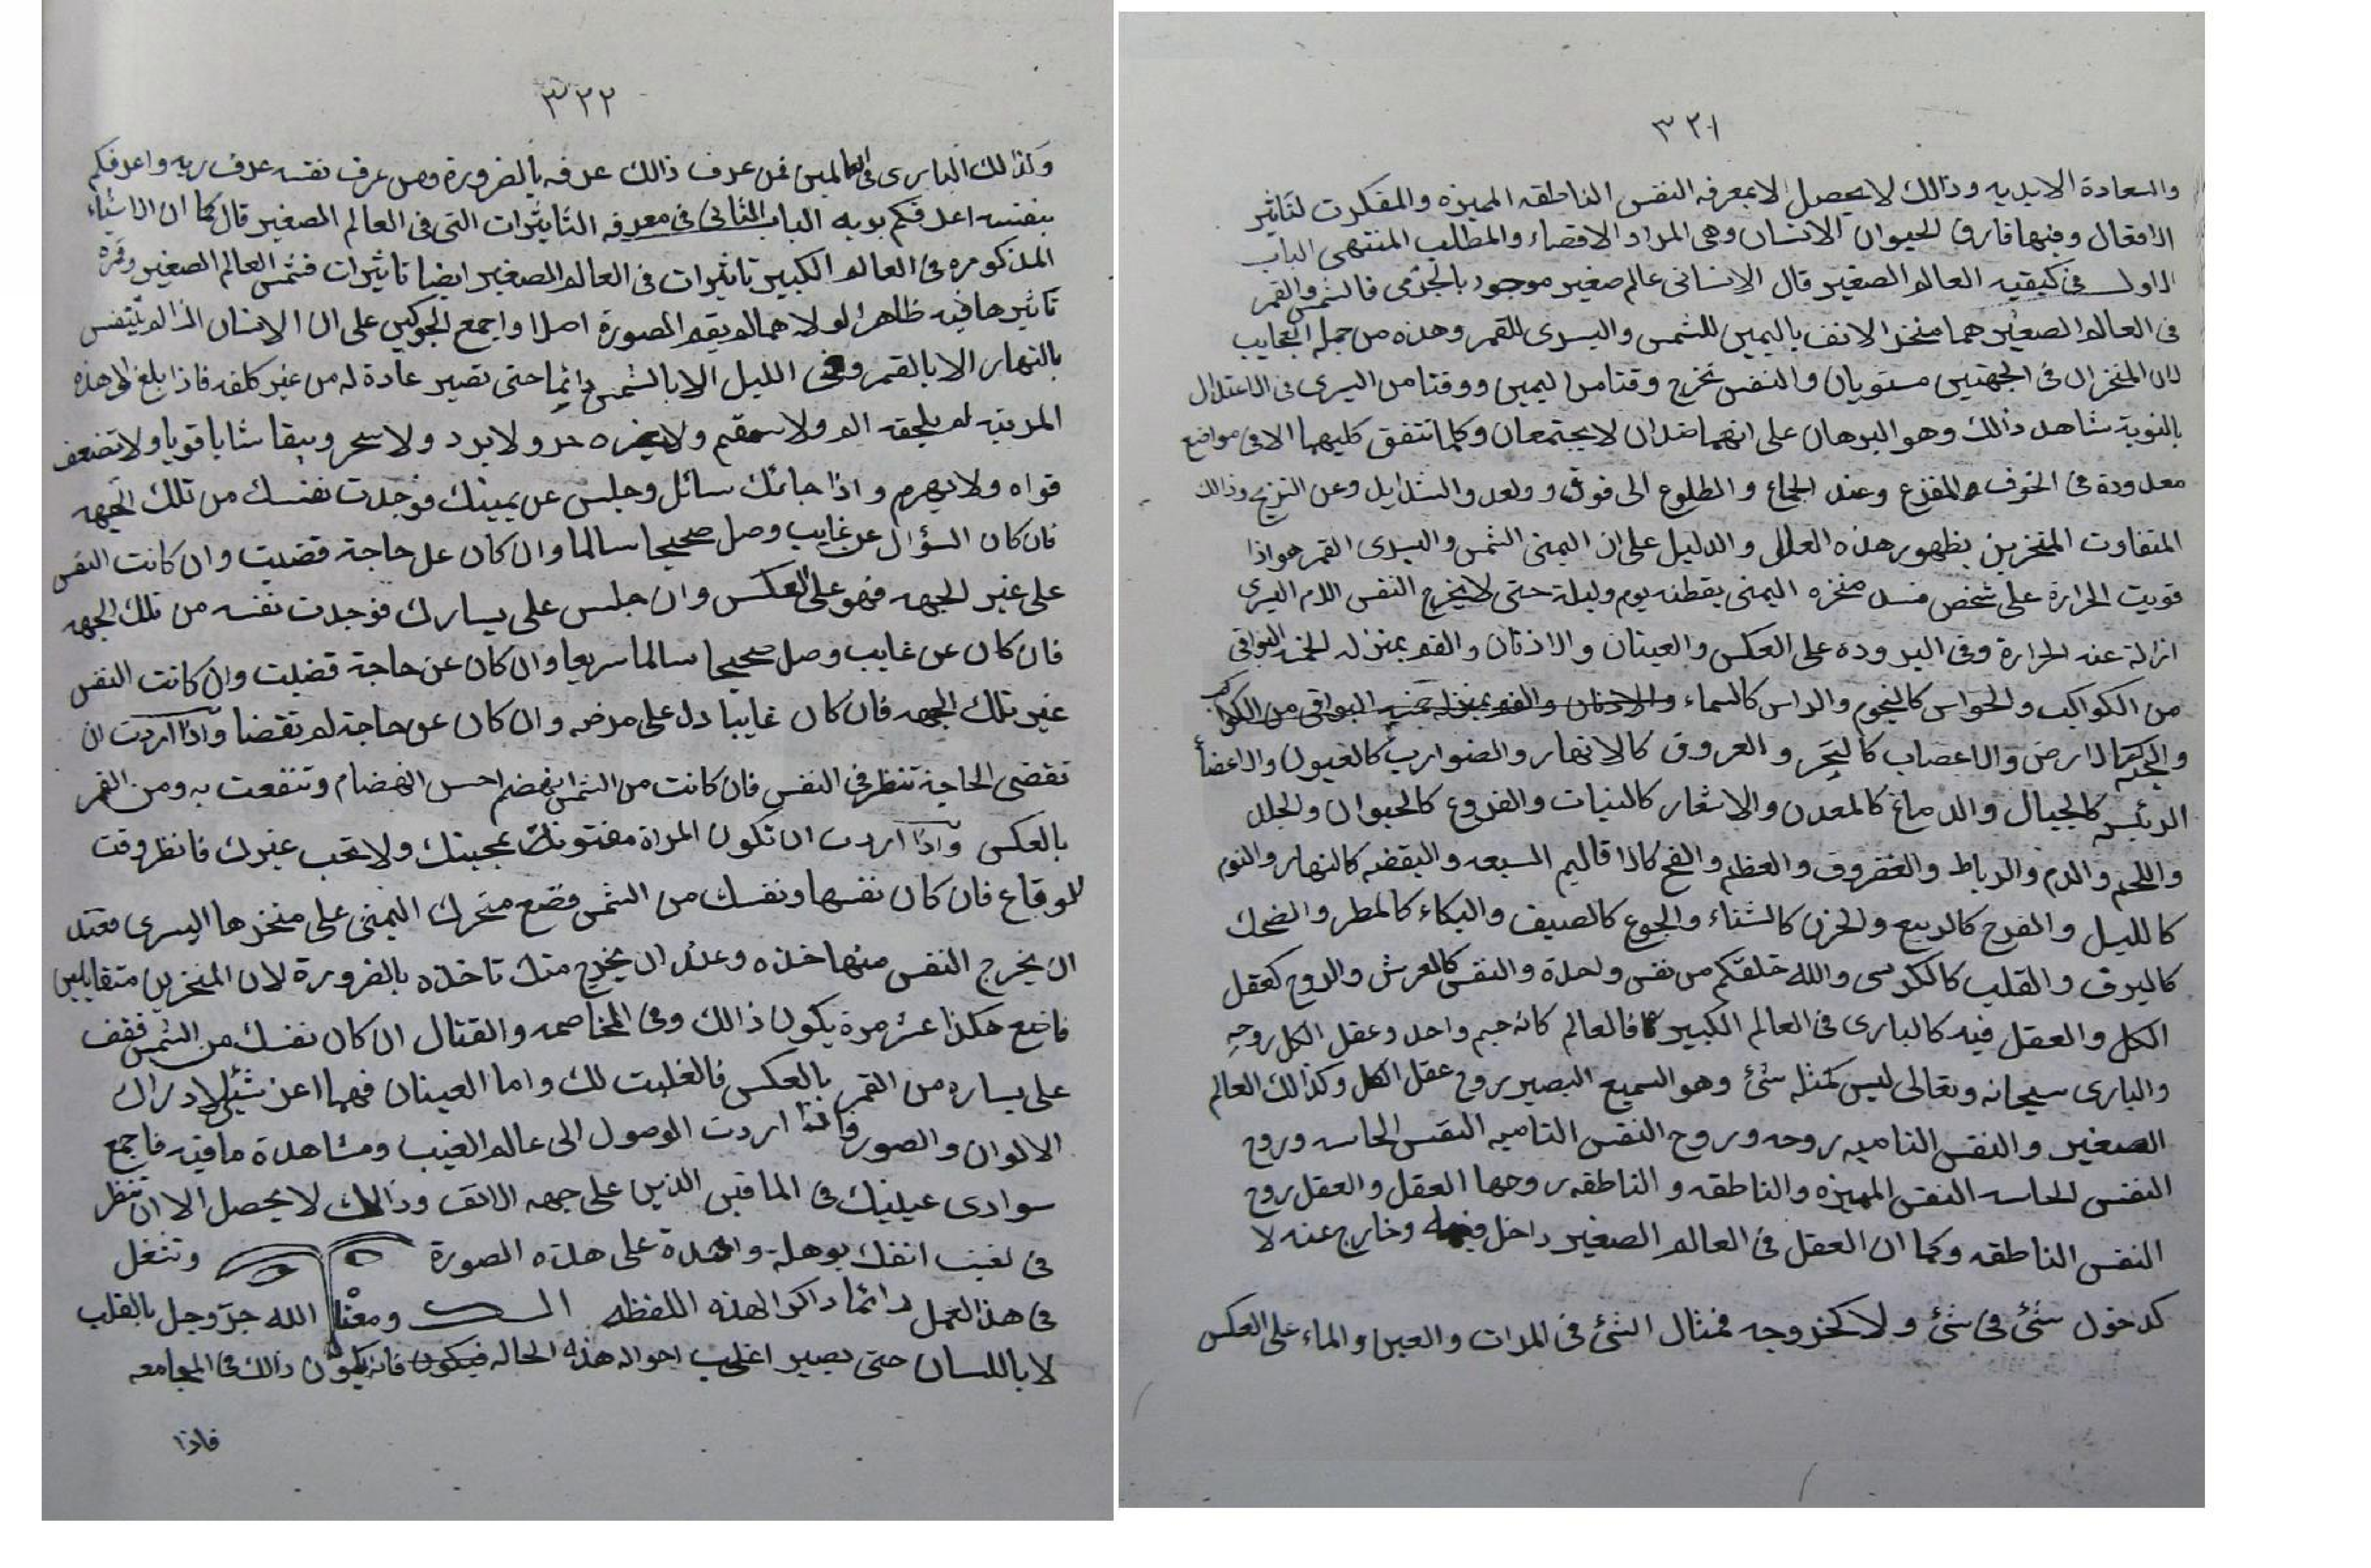 ٣٢١
والسعادة الابديه وذالك لا يحصل الا بمعرفه النفس الناطقه المميزه والمفكرت لتاثير
الافعال وفيها فارق الحيوان الانسان وهي المراد الاقصاء والمطلب المنتهى الباب
الاول في كيفيه العالم الصغير قال الانسانى عالم صغير موجود بالجزمى فالشمس والقمر
فى العالم الصغير هما منخر الانف باليمين للشمس واليسرى للقمر وهذه من جمله العجايب
لان المنخران فى الجهتين مستويان والنفس تخرج وقتا من اليمين ووقتا من اليسرى فى الاعتدال
بالنوبة شاهد ذالك وهو البرهان على انهما ضدان لا يجتمعان وكلما تتفق كليهما الا فى مواضع
معدودة فى الخوف والمفزع وعند الجماع والطلوع الى فوق وو لعد والشدايد وعن النزيح وذالك
المتفاوت المنخرين بظهور هذه العلل والدليل على ان اليمنى الشمس واليسرى القمر هو اذا
قويت الحرارة على شخص فسد منخره اليمنى بقطنه يوم وليلة حتى لا يخرج النفس الا من اليسرى
ازالة عنه الحرارة وفى البروده على العكس والعينان والاذنان والفم بمنزله الخمسه البواقى
من الكواكب والحواس كالنجوم والراس كالسماء والاذنان والفم بمنزله خمسه البواقى من الكواكب
والجثه كالارض والاعصاب كالبحر والعروق كالانهار والضوارب كالعيون والاعضأ
الرئيسه كالجبال والدماغ كالمعدن والاشعار كالنبات والفروع كالحيوان والجلد
واللحم والدم والرباط والغضروف والعظم والمخ كالاقاليم السبعه واليقضه كالنهار والنوم
كالليل والفرح كالربيع والحزن كالشتاء والجوع كالصيف والبكاء كالمطر والضحك
كالبرق والقلب كالكرسى والله خلقكم من نفس واحدة والنفس كالعرش والروح كعقل
الكل والعقل فيه كالبارى فى العالم الكبير فالعالم كانه جسم واحد وعقل الكل روحه
والبارى سبحانه وتعالى ليس كمثله شئ وهو السميع البصير بروح عقل الكل وكذالك العالم
الصغير والنفس الناميه بروحه وبروح النفس الناميه النفس الحاسه وروح
النفس الحاسه النفس المميزه والناطقه والناطقه بروحها العقل والعقل بروح
النفس الناطقه وكما ان العقل فى العالم الصغير داخل فيه وخارج عنه لا
كدخول شئ فى شئ ولا كخروجه فمثال الشئ فى المرات والعين والماء على العكس
٣٢٢
وكذلك البارى فى العالمين فمن عرف ذالك عرفه بالضرورة ومن عرف نفسه عرف ربه واعرفكم
بنفسه اعرفكم بربه الباب الثانى فى معرفه التاثيرات التى فى العالم الصغير قال كما ان الاشياء
المذكوره فى العالم الكبير تاثيرات فى العالم الصغير ايضا تاثيرات فشمس العالم الصغير وقمره
تاثيرها فيه ظاهرا لولا هما لم يقم الصورة اصلا واجمع الجوكين على ان الانسان اذا لم يتنفس
بالنهار الا بالقمر وفى الليل الا بالشمس دائما حتى تصير عادة له من غير كلفه فاذا بلغ الى هذه
المرتبه لم يلحقه الم ولا سقم ولا يضره حر ولا برد ولا سحر ويبقا شابا قويا ولا تضعف
قواه ولا يهرم واذا جائك سائل وجلس عن يمينك فوجدت نفسك من تلك الجهه
فان كان السؤال عن غايب وصل صحيحا سالما وان كان عل حاجة قضيت وان كانت النفس
على غير الجهه فهو على العكس وان جلس على يسارك فوجدت نفسه من تلك الجهه
فان كان عن غايب وصل صحيحا سالما سريعا وان كان عن حاجة قضيت وان كانت النفس
غير تلك الجهه فان كان غايبا دل على مرضه وان كان عن حاجة لم تقضا واذا اردت ان
تقضى الحاجة تنظر فى النفس فان كانت من الشمس انهضم احسن انهضام وتنفعت به ومن القمر
بالعكس واذا اردت ان تكون المراة مفتونك بمحبتك ولا تحب غيرك فانظر وقت
للوقاع فان كان نفسها ونفسك من الشمس فضع منخرك اليمنى على منخرها اليسرى فعند
ان يخرج النفس منها خذه وعند ان يخرج منك تاخذه بالضرورة لان المنخرين متقابلين
فاضع هكذا عشر مرة يكون ذالك وفى المخاصمه والقتال ان كان نفسك من الشمس فقف
على يساره من القمر بالعكس فالغلبت لك واما العينان فهما اعز شئ لادراك
الالوان والصور واذا اردت الوصول الى عالم الغيب ومشاهدة ما فيه فاجمع
سوادى عينيك فى الماقين الذين على جهه الانف وذالك لا يحصل الا ان تنظر
فى نفسك بوهلة واحدة على هذه الصورة وتشغل
فى هذ العمل دائما ذاكرا لهذه اللفظه ومعنا الله جز وجل بالقلب
لا باللسان حتى يصير اغلب احواله هذه الحاله فيكون فانه يكون ذالك فى المجامعه
فاذا